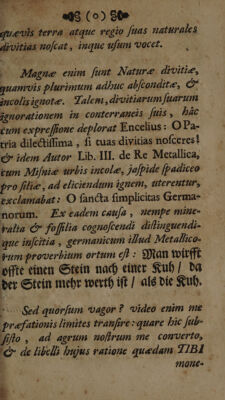 (o)
quævis terra atque regio suas naturales
divitias noscat, inque usum vocet.
Magnæ enim sunt Naturæ divitiæ,
quamvis plurimum adhuc absconditæ, &
incolis ignotæ. Talem, divitiarum suarum
ignorationem in conterraneis suis, hâc
cum expressione deplorat Encelius: O Pa-
tria dilectissima, si tuas divitias nosceres!
& idem Autor Lib. III. de Re Metallica,
cum Misniæ urbis incolæ, jaspide spadiceo
pro silice, ad eliciendum ignem, uterentur,
exclamabat: O sancta simplicitas Germa-
norum. Ex eadem causa, nempe mine-
ralia & fossilia cognoscendi distinguendi-
que inscitia, germanicum illud Metallico-
rum proverbium ortum est: Man wirfft
offte einen Stein nach einer Kuh / da
der Stein mehr werth ist / als die Kuh.
Sed quorsum vagor? video enim me
præfationis limites transire: quare hic sub-
sisto, ad agrum nostrum me converto,
& de libelli hujus ratione quædam TIBI
mone-